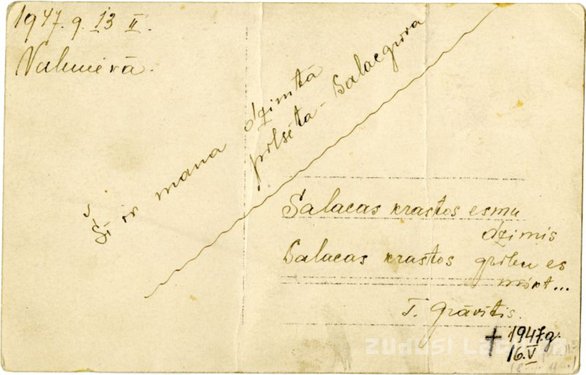 1947. g. 13 II.
Valmierā.
Šī ir mana dzimtā
pilsēta - Salacgrīva
Salacas krastos esmu
dzimis
Salacas krastos gribu es
mirt...
T. Grāvītis.
† 1947g.
16.V
ZUDUSĪ LATVIJA